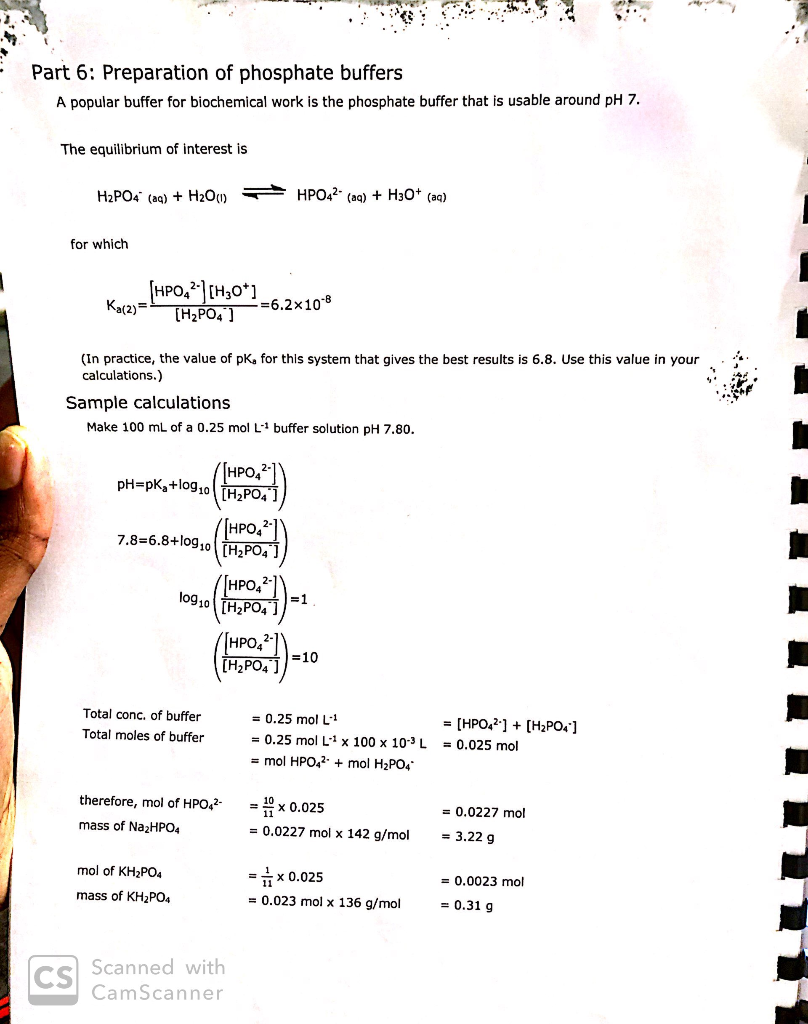 Part 6: Preparation of phosphate buffers
A popular buffer for biochemical work is the phosphate buffer that is usable around pH 7.
The equilibrium of interest is
H₂PO₄⁻ (aq) + H₂O(l) ⇌ HPO₄²⁻ (aq) + H₃O⁺ (aq)
for which
Kₐ₍₂₎=[HPO₄²⁻][H₃O⁺]/[H₂PO₄⁻]=6.2×10⁻⁸
(In practice, the value of pKₐ for this system that gives the best results is 6.8. Use this value in your
calculations.)
Sample calculations
Make 100 mL of a 0.25 mol L⁻¹ buffer solution pH 7.80.
pH=pKₐ+log₁₀([HPO₄²⁻]/[H₂PO₄⁻])
7.8=6.8+log₁₀([HPO₄²⁻]/[H₂PO₄⁻])
log₁₀([HPO₄²⁻]/[H₂PO₄⁻])=1
([HPO₄²⁻]/[H₂PO₄⁻])=10
Total conc. of buffer = 0.25 mol L⁻¹ = [HPO₄²⁻] + [H₂PO₄⁻]
Total moles of buffer = 0.25 mol L⁻¹ x 100 x 10⁻³ L = 0.025 mol
= mol HPO₄²⁻ + mol H₂PO₄⁻
therefore, mol of HPO₄²⁻ = 10/11 x 0.025 = 0.0227 mol
mass of Na₂HPO₄ = 0.0227 mol x 142 g/mol = 3.22 g
mol of KH₂PO₄ = 1/11 x 0.025 = 0.0023 mol
mass of KH₂PO₄ = 0.023 mol x 136 g/mol = 0.31 g
CS Scanned with
CamScanner